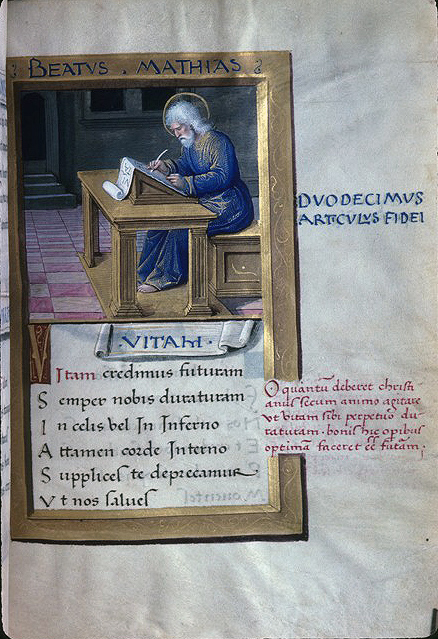 BEATVS . MATHIAS
DVODECIMVS
ARTCVLVS FIDEI
VITAM ·
VItam credimus futuram
Semper nobis duraturam
In celis vel In Inferno
Attamen corde Interno
Supplices te deprecamur
Vt nos salves
O quantū deberet christi
anus secum animo agitare
vt vitam sibi perpetuo du-
raturam · bonis hic opibus
optimā faceret eē futām ·